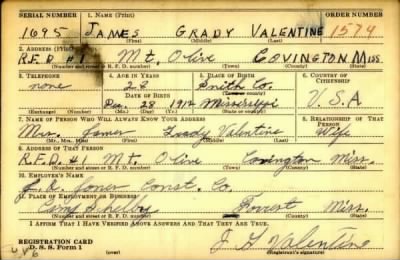 SERIAL NUMBER 1. NAME (Print) ORDER NUMBER
1695 JAMES GRADY VALENTINE 1574
(First) (Middle) (Last)
2. ADDRESS (Print)
R.F.D #1 Mt. Olive COVINGTON MISS.
(Number and street or R. F. D. number) (Town) (County) (State)
3. TELEPHONE 4. AGE IN YEARS 5. PLACE OF BIRTH 6. COUNTRY OF CITIZENSHIP
none 28 Smith Co.
DATE OF BIRTH (Town or county)
Dec. 28 1912 Mississippi U.S.A
(Exchange) (Number) (Mo.) (Day) (Yr.) (State or country)
7. NAME OF PERSON WHO WILL ALWAYS KNOW YOUR ADDRESS 8. RELATIONSHIP OF THAT PERSON
Mrs. James Grady Valentine Wife
(Mr., Mrs., Miss) (First) (Middle) (Last)
9. ADDRESS OF THAT PERSON
R.F.D. #1 Mt. Olive Covington Miss.
(Number and street or R. F. D. number) (Town) (County) (State)
10. EMPLOYER'S NAME
J. A. Jones Const. Co.
11. PLACE OF EMPLOYMENT OR BUSINESS
Camp Shelby Forrest Miss.
(Number and street or R. F. D. number) (Town) (County) (State)
I AFFIRM THAT I HAVE VERIFIED ABOVE ANSWERS AND THAT THEY ARE TRUE.
REGISTRATION CARD
D. S. S. Form 1 (over) J G Valentine
(Registrant's signature)